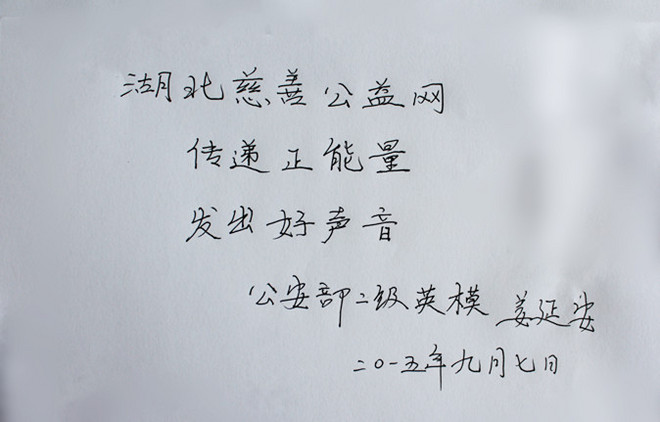 湖北慈善公益网
传递正能量
发出好声音
公安部二级英模 姜延安
二〇一五年九月七日